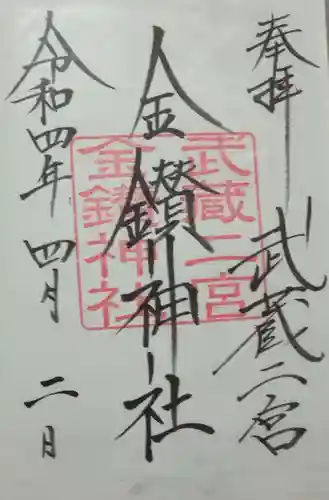 奉拝
武蔵二宮
金鑚神社
令和四年 四月 二日
武蔵二宮
金鑚神社